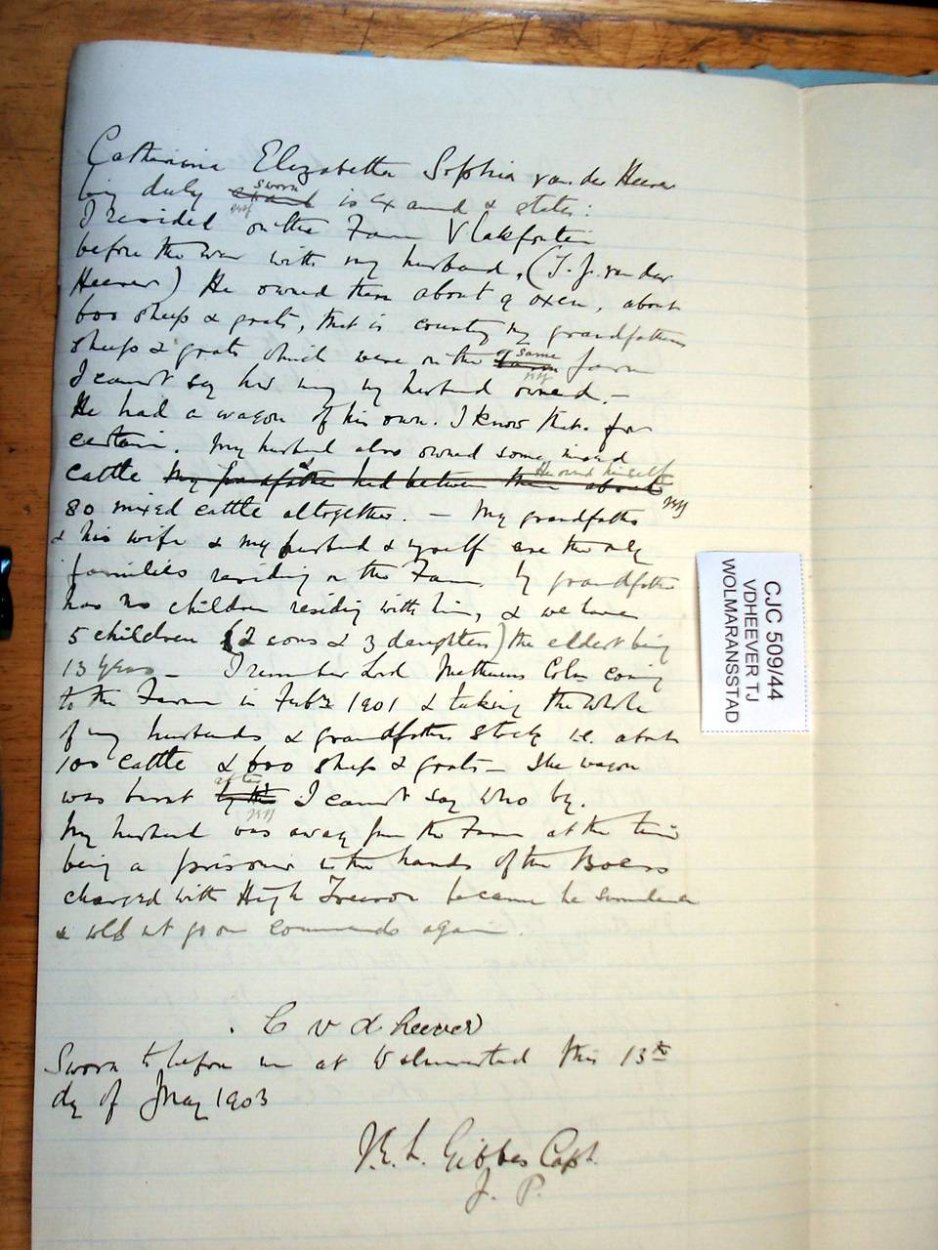 Catherina Elizabetha Sophia van der Heever
being duly sworn is examd & states:
I resided on the Farm Vlakfontein
before the war with my husband, (T. J. van der
Heever) He owned then about 9 oxen, about
600 sheep & goats, that is counting my grandfathers
sheep & goats which were on the same farm
I cannot say how many my husband owned. —
He had a wagon of his own. I know that for
certain. My husband also owned some mixed
cattle My grandfather had between them about He and himself
80 mixed cattle altogether. — My grandfather
& his wife & my husband & myself are the only
families residing on the Farm. My grandfather
has no children residing with him, & we have
5 children (2 sons & 3 daughters) the eldest being
13 years — I remember Lord Methuens Coln coming
to the Farm in Feby 1901 & taking the whole
of my husbands & grandfathers stock i.e. about
100 cattle & 600 sheep & goats — The wagon
was burnt after I cannot say who by.
My husband was away from the Farm at the time
being a prisoner in the hands of the Boers
charged with High Treason because he surrendered
& wld not go on commando again.
C v d heever
Sworn to before me at Wolmarstad this 13th
day of May 1903
Gibbes Capt.
J. P.
CJC 509/44
VDHEEVER TJ
WOLMARANSSTAD